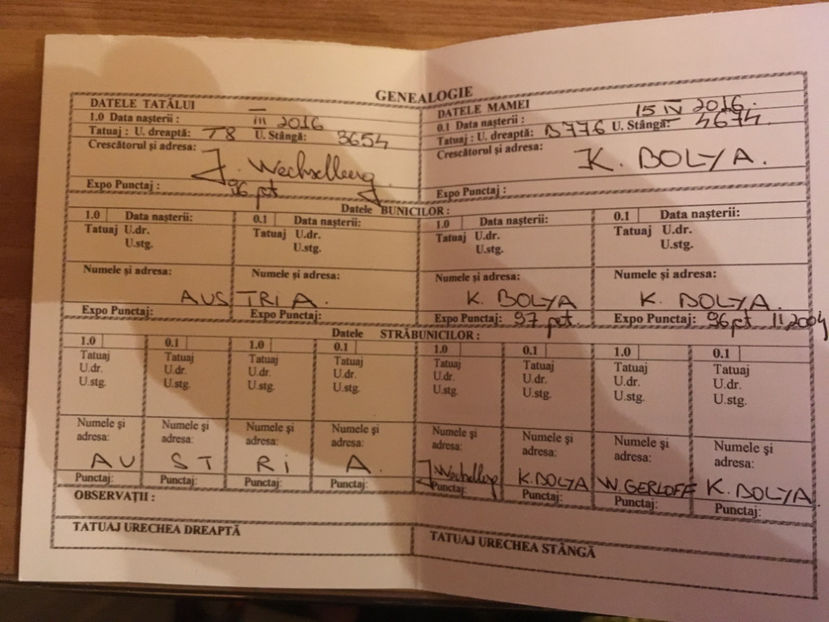 GENEALOGIE
DATELE TATĂLUI
1.0 Data nașterii : III 2016
Tatuaj : U. dreaptă: T8 U. Stângă: 3654
Crescătorul și adresa:
J. Wechselberg
96 pt
Expo Punctaj :
DATELE MAMEI
0.1 Data nașterii : 15 IV 2016.
Tatuaj : U. dreaptă: B776 U. Stângă: 4674.
Crescătorul și adresa: K. BOLYA.
Expo Punctaj :
Datele BUNICILOR :
1.0 Data nașterii: 0.1 Data nașterii: 1.0 Data nașterii: 0.1 Data nașterii:
Tatuaj U.dr. Tatuaj U.dr. Tatuaj U.dr. Tatuaj U.dr.
U.stg. U.stg. U.stg. U.stg.
Numele și adresa: Numele și adresa: Numele și adresa: Numele și adresa:
AUSTRIA. K. BOLYA K. BOLYA.
Expo Punctaj: Expo Punctaj: Expo Punctaj: 97 pct. Expo Punctaj: 96pt II 2004
Datele STRĂBUNICILOR :
1.0 0.1 1.0 0.1 1.0 0.1 1.0 0.1
Tatuaj Tatuaj Tatuaj Tatuaj Tatuaj Tatuaj Tatuaj Tatuaj
U.dr. U.dr. U.dr. U.dr. U.dr. U.dr. U.dr. U.dr.
U.stg. U.stg. U.stg. U.stg. U.stg. U.stg. U.stg. U.stg.
Numele și Numele și Numele și Numele și Numele și Numele și Numele și Numele și
adresa: adresa: adresa: adresa: adresa: adresa: adresa: adresa:
AU ST Ri A. J Wechselberg K.BOLYA W.GERLOFF K. BOLYA
Punctaj: Punctaj: Punctaj: Punctaj: Punctaj: Punctaj: Punctaj: Punctaj:
OBSERVAȚII :
TATUAJ URECHEA DREAPTĂ
TATUAJ URECHEA STÂNGĂ